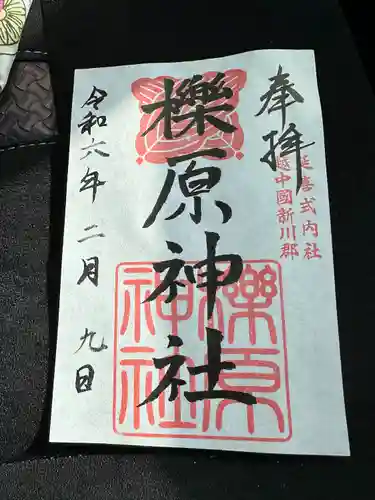 奉拝
延喜式内社
越中國新川郡
櫟原神社
櫟原神社
令和六年二月九日